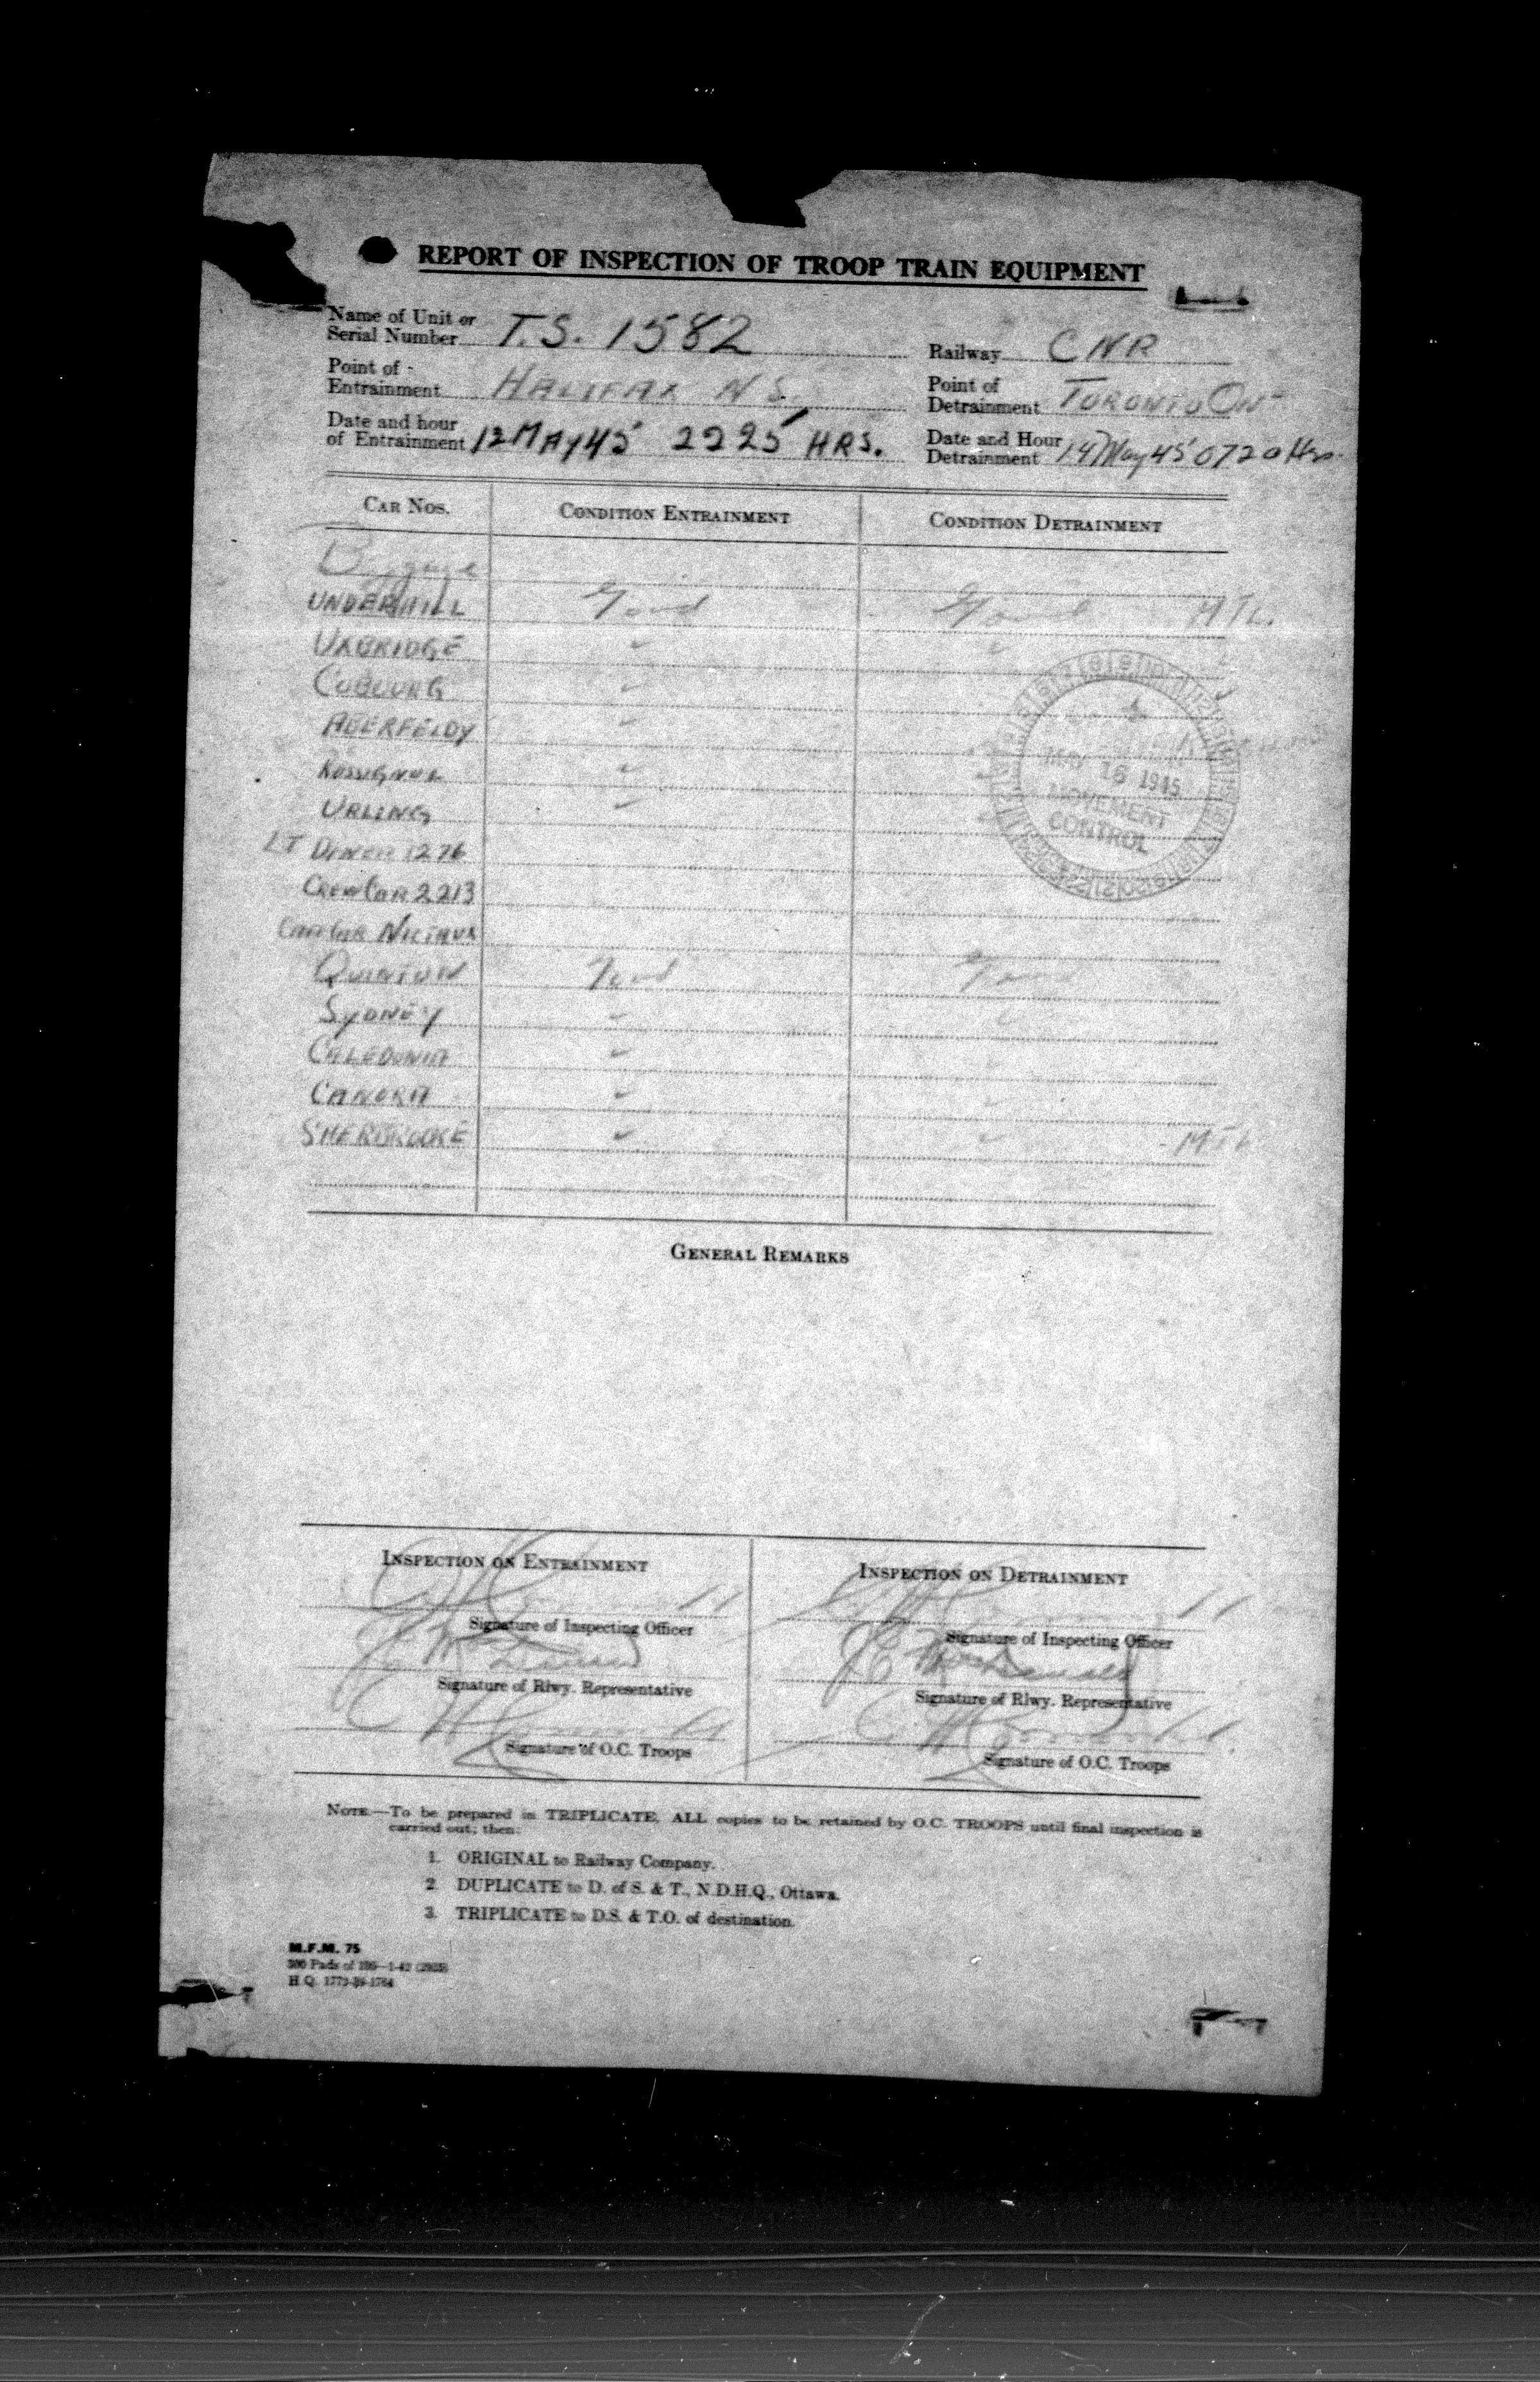 REPORT OF INSPECTION OF TROOP TRAIN EQUIPMENT
Name of Unit or
Serial Number T.S. 1582
Railway CNR
Point of
Entrainment HALIFAX N.S.
Point of
Detrainment TORONTO ON
Date and hour
of Entrainment 12 MAY 45 2225 HRS.
Date and Hour
Detrainment 14 May 45 0720 Hrs.
CAR NOS. CONDITION ENTRAINMENT CONDITION DETRAINMENT
Baggage
UNDERHILL Good Good MTL.
UXBRIDGE ✓ ✓
COBOURG ✓ ✓
ABERFELDY ✓
ROSSIGNOL ✓
URLING ✓
16 1945
MOVEMENT
CONTROL
LT DINER 1276
CREW CAR 2213
QUINTON Good Good
SYDNEY ✓ ✓
CALEDONIA ✓ ✓
CANORA ✓ ✓
SHERBROOKE ✓ ✓ MTL
GENERAL REMARKS
INSPECTION ON ENTRAINMENT INSPECTION ON DETRAINMENT
Signature of Inspecting Officer Signature of Inspecting Officer
Signature of Rlwy. Representative Signature of Rlwy. Representative
Signature of O.C. Troops Signature of O.C. Troops
NOTE.—To be prepared in TRIPLICATE. ALL copies to be retained by O.C. TROOPS until final inspection is
carried out; then:
1. ORIGINAL to Railway Company.
2. DUPLICATE to D. of S. & T., N.D.H.Q., Ottawa.
3. TRIPLICATE to D.S. & T.O. of destination.
M.F.M. 75
H.Q. 1772-39-1764